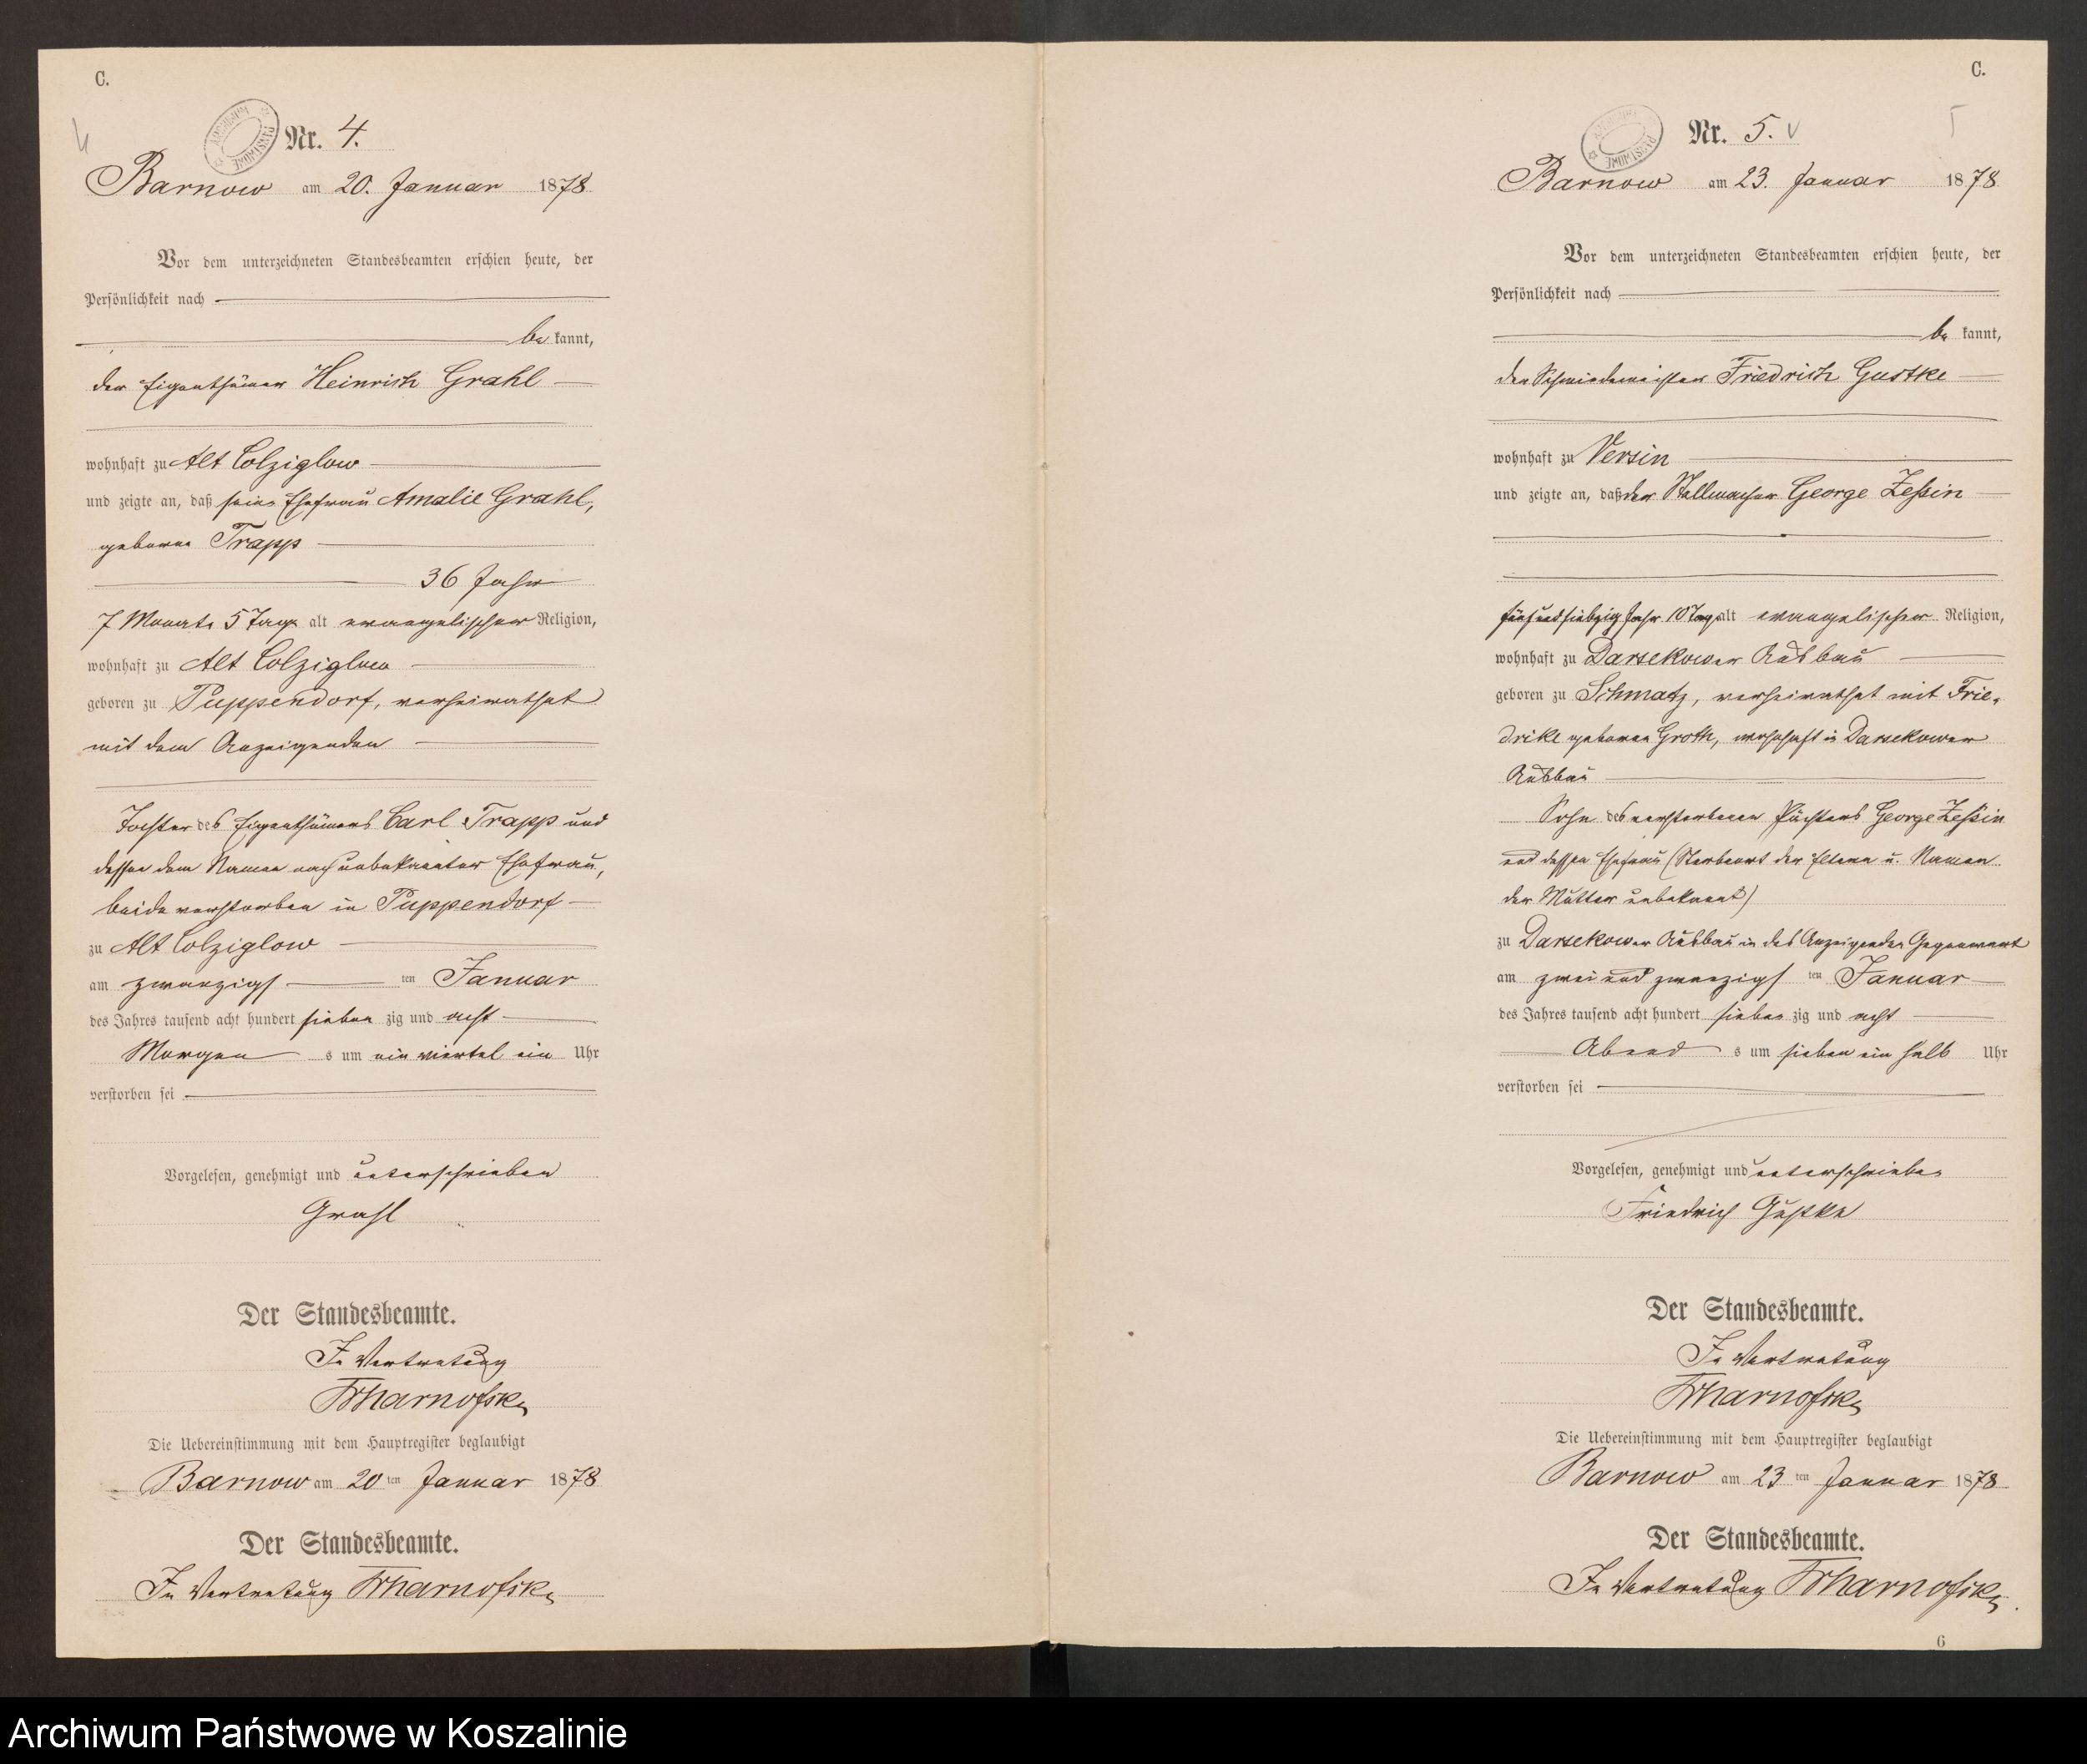 C.
4
Nr. 4.
Barnow am 20. Januar 1878.
Vor dem unterzeichneten Standesbeamten erschien heute, der
Persönlichkeit nach
be kannt,
der Eigenthümer Heinrich Grahl
wohnhaft zu Alt Colziglow
und zeigte an, daß seine Ehefrau Amalie Grahl,
geborne Trapp
36 Jahr
7 Monate 5 Tage alt evangelischer Religion,
wohnhaft zu Alt Colziglow
geboren zu Puppendorf, verheirathet
mit dem Anzeigenden
Tochter des Eigenthümers Carl Trapp und
dessen dem Namen nach unbekannter Ehefrau,
beide verstorben in Puppendorf
zu Alt Colziglow
am zwanzigs ten Januar
des Jahres tausend acht hundert sieben zig und acht
Morgen s um ein viertel ein Uhr
verstorben sei
Vorgelesen, genehmigt und unterschrieben
Grahl
Der Standesbeamte.
In Vertretung
Die Uebereinstimmung mit dem Hauptregister beglaubigt
Barnow am 20 ten Januar 1878
Der Standesbeamte.
In Vertretung
C.
5
Nr. 5.
Barnow am 23. Januar 1878
Vor dem unterzeichneten Standesbeamten erschien heute, der
Persönlichkeit nach
be kannt,
der Schmiedemeister Friedrich Gustke
wohnhaft zu Versin
und zeigte an, daß der Stellmacher George Zeßin
fünfundsiebzig Jahr 10 Tage alt evangelischer Religion,
wohnhaft zu Darsekower Ausbau
geboren zu Schmatz, verheirathet mit Frie-
drike geborne Groth, wohnhaft in Darsekower
Ausbau
Sohn des verstorbenen Pächters George Zeßin
und dessen Ehefrau (Sterbeort der Eltern u. Namen
der Mutter unbekannt)
zu Darsekower Ausbau in des Anzeigenden Gegenwart
am zwei und zwanzigs ten Januar
des Jahres tausend acht hundert sieben zig und acht
Abend s um sieben ein halb Uhr
verstorben sei
Vorgelesen, genehmigt und unterschrieben
Friedrich Gustke
Der Standesbeamte.
In Vertretung
Die Uebereinstimmung mit dem Hauptregister beglaubigt
Barnow am 23 ten Januar 1878
Der Standesbeamte.
In Vertretung
6
Archiwum Państwowe w Koszalinie